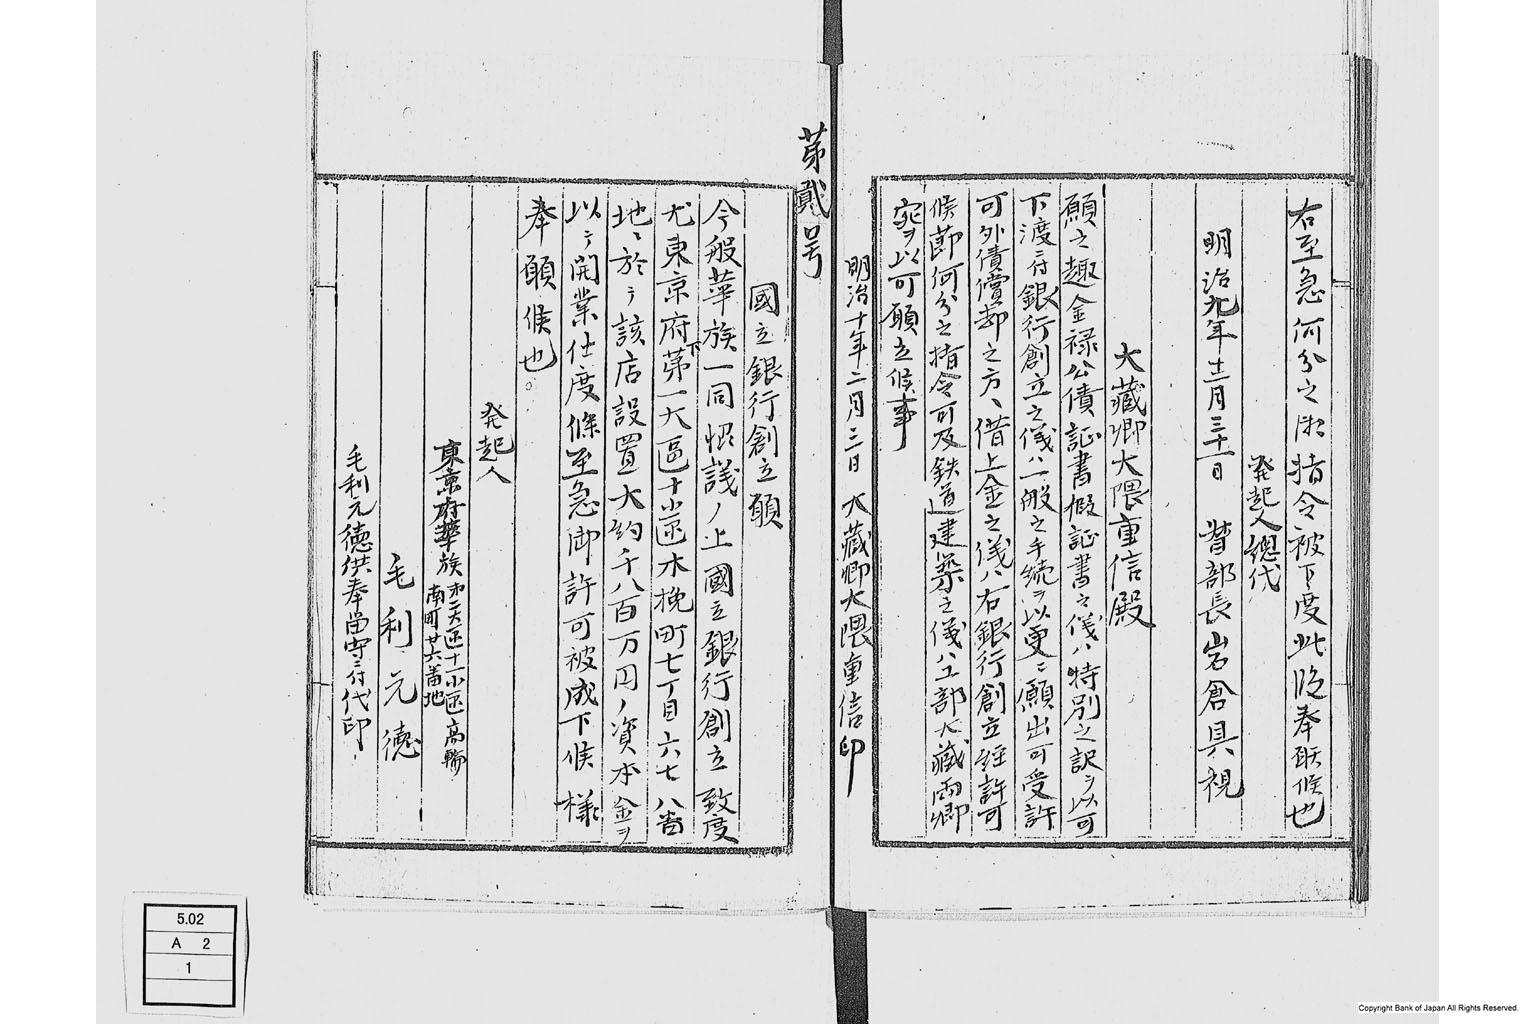 右至急何分之御指令被下度此段奉願候也
発起人總代
明治九年十二月三十一日 督部長岩倉具視
大藏卿大隈重信殿
願之趣金禄公債証書假証書之儀ハ特別之訳ヲ以可
下渡ニ付銀行創立之儀ハ一般之手続ヲ以更ニ願出可受許
可外債償却之方ヘ借上金之儀ハ右銀行創立經許可
候節何分之指令可及鉄道建築之儀ハ工部大藏両卿
宛ヲ以可願立候事
明治十年二月三日 大藏卿大隈重信印
第貳号
國立銀行創立願
今般華族一同協議ノ上國立銀行創立致度
尤東京府下第一大區十小區木挽町七丁目六七八番
地ニ於テ該店設置大約千八百万円ノ資本金ヲ
以テ開業仕度候條至急御許可被成下候様
奉願候也。
発起人
東京府華族 第二大區十一小區高輪南町廿六番地
毛利元徳
毛利元徳供奉留守ニ付代印
5.02
A 2
1
Copyright Bank of Japan All Rights Reserved.